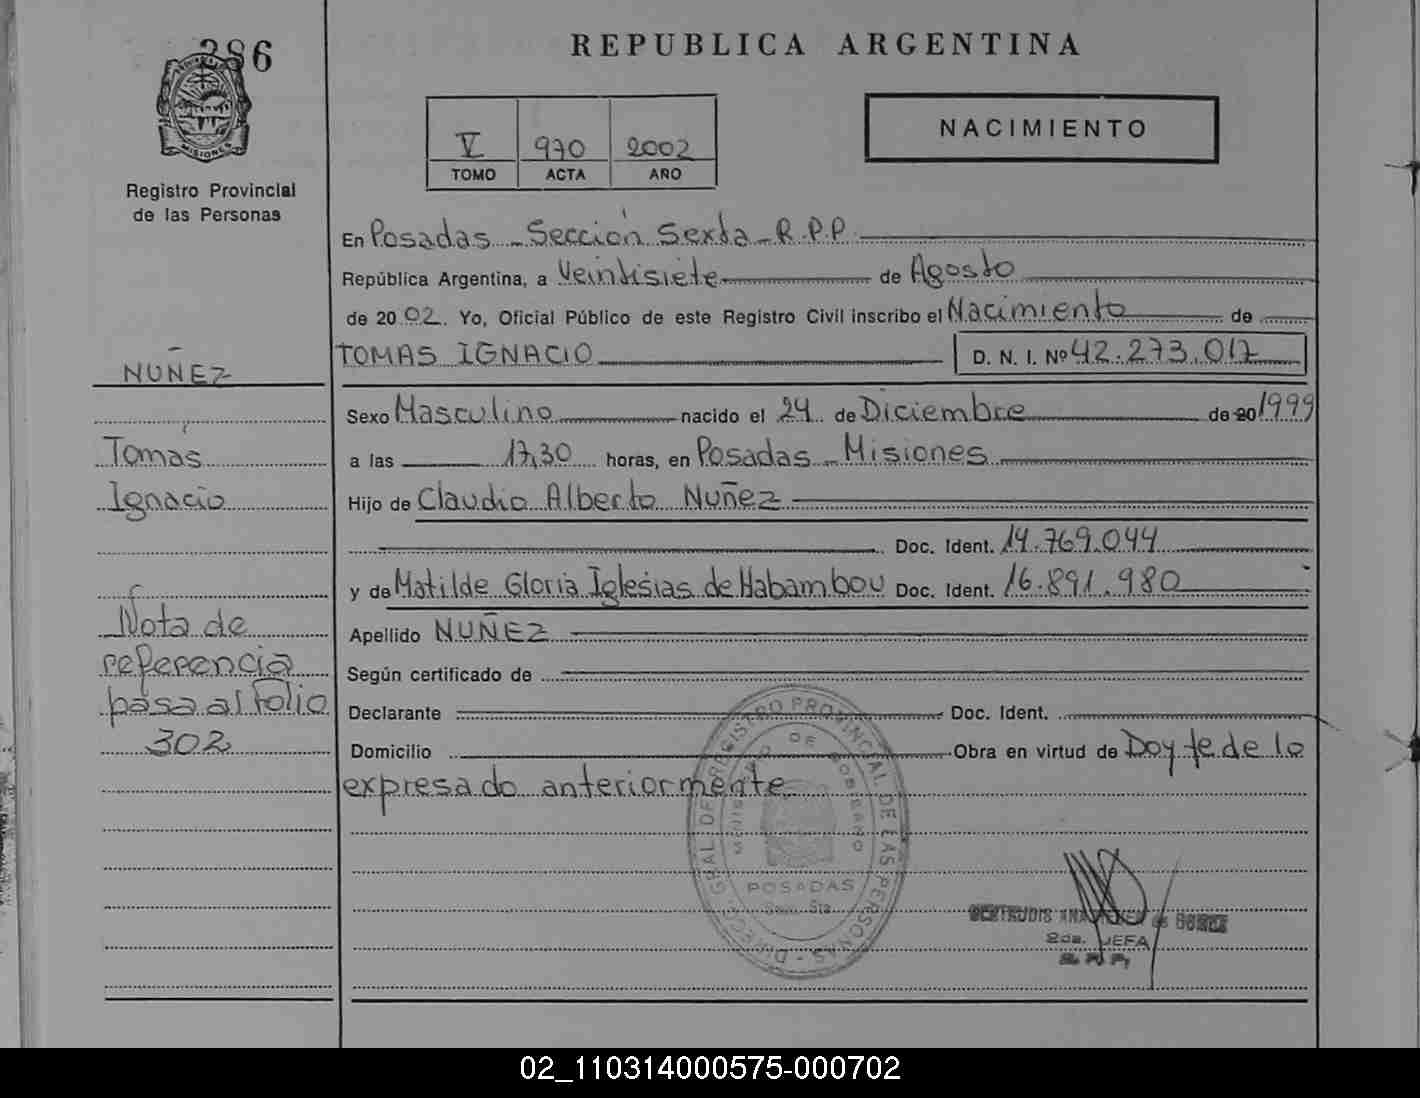 286
MISIONES
Registro Provincial
de las Personas
REPUBLICA ARGENTINA
V 970 2002
TOMO ACTA AÑO
NACIMIENTO
En Posadas - Sección Sexta - R.P.P.
República Argentina, a Veintisiete de Agosto
de 2002. Yo, Oficial Público de este Registro Civil inscribo el Nacimiento de
TOMAS IGNACIO D. N. I. Nº 42.273.017
NUÑEZ
Sexo Masculino nacido el 24 de Diciembre de 20 1999
Tomás
a las 17,30 horas, en Posadas - Misiones
Ignacio
Hijo de Claudio Alberto Nuñez
Doc. Ident. 14.769.044
y de Matilde Gloria Iglesias de Habambou Doc. Ident. 16.891.980
Nota de
referencia
pasa al Folio
302
Apellido NUÑEZ
Según certificado de
Declarante Doc. Ident.
Domicilio Obra en virtud de Doy fe de lo
expresado anteriormente
DIRECC. GRAL. DEL REGISTRO PROVINCIAL DE LAS PERSONAS
MINISTERIO DE GOBIERNO
POSADAS
Secc. 6ta
GERTRUDIS ANA de
2da. JEFA
R. P. P.
02_110314000575-000702